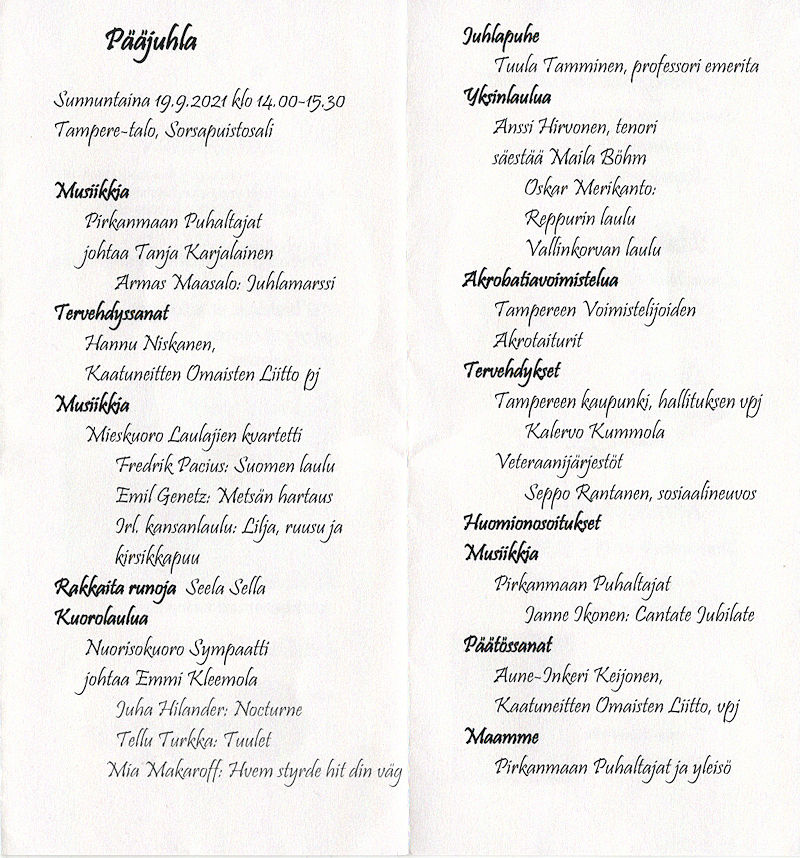 Pääjuhla
Sunnuntaina 19.9.2021 klo 14.00-15.30
Tampere-talo, Sorsapuistosali
Musiikkia
Pirkanmaan Puhaltajat
johtaa Tanja Karjalainen
Armas Maasalo: Juhlamarssi
Tervehdyssanat
Hannu Niskanen,
Kaatuneitten Omaisten Liitto pj
Musiikkia
Mieskuoro Laulajien kvartetti
Fredrik Pacius: Suomen laulu
Emil Genetz: Metsän hartaus
Irl. kansanlaulu: Lilja, ruusu ja
kirsikkapuu
Rakkaita runoja Seela Sella
Kuorolaulua
Nuorisokuoro Sympaatti
johtaa Emmi Kleemola
Juha Hilander: Nocturne
Tellu Turkka: Tuulet
Mia Makaroff: Hvem styrde hit din väg
Juhlapuhe
Tuula Tamminen, professori emerita
Yksinlaulua
Anssi Hirvonen, tenori
säestää Maila Böhm
Oskar Merikanto:
Reppurin laulu
Vallinkorvan laulu
Akrobatiavoimistelua
Tampereen Voimistelijoiden
Akrotaiturit
Tervehdykset
Tampereen kaupunki, hallituksen vpj
Kalervo Kummola
Veteraanijärjestöt
Seppo Rantanen, sosiaalineuvos
Huomionosoitukset
Musiikkia
Pirkanmaan Puhaltajat
Janne Ikonen: Cantate Jubilate
Päätössanat
Aune-Inkeri Keijonen,
Kaatuneitten Omaisten Liitto, vpj
Maamme
Pirkanmaan Puhaltajat ja yleisö